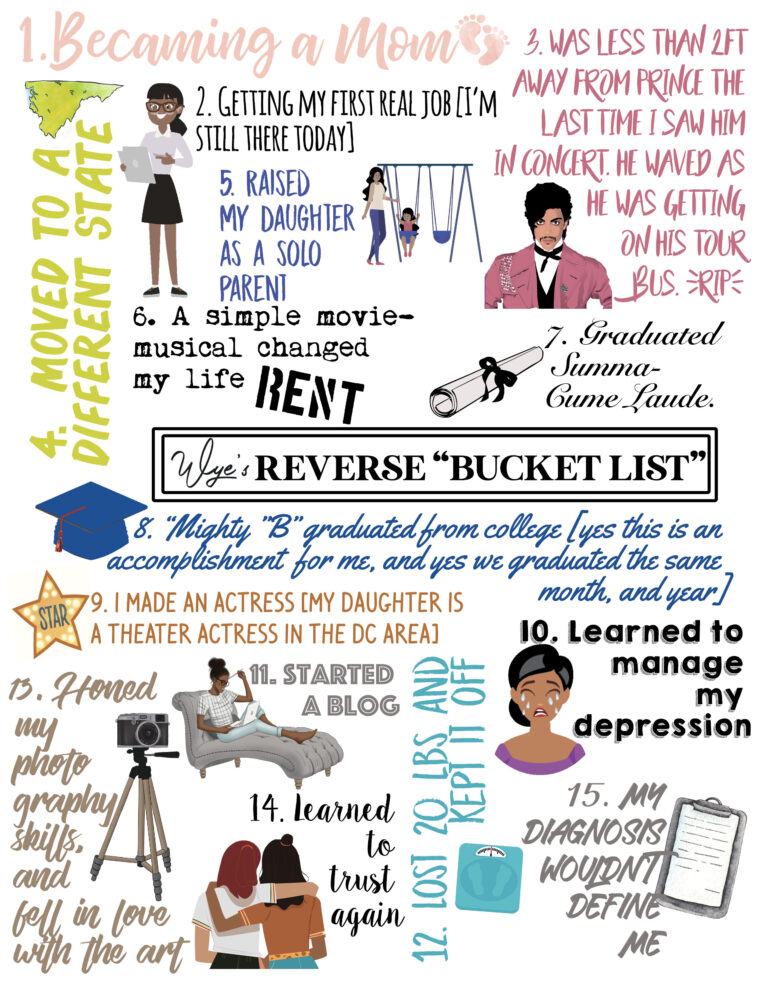 1.Becaming a Mom
2. Getting my first real job [I'm
still there today]
3. WAS LESS THAN 2FT
AWAY FROM PRINCE THE
LAST TIME I SAW HIM
IN CONCERT. HE WAVED AS
HE WAS GETTING
ON HIS TOUR
BUS. RIP
4. MOVED TO A
DIFFERENT STATE
5. RAISED
MY DAUGHTER
AS A SOLO
PARENT
6. A simple movie-
musical changed
my life RENT
7. Graduated
Summa-
Cume Laude.
Wye's REVERSE “BUCKET LIST”
8. “Mighty "B" graduated from college [yes this is an
accomplishment for me, and yes we graduated the same
month, and year]
STAR
9. I MADE AN ACTRESS [MY DAUGHTER IS
A THEATER ACTRESS IN THE DC AREA]
10. Learned to
manage
my
depression
11. STARTED
A BLOG
12. LOST 20 LBS AND
KEPT IT OFF
13. Honed
my
photo
graphy
skills,
and
fell in love
with the art
14. Learned
to
trust
again
15. MY
DIAGNOSIS
WOULDN'T
DEFINE
ME